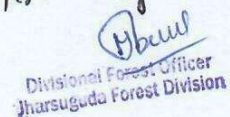 Divisional Forest Officer
Jharsuguda Forest Division